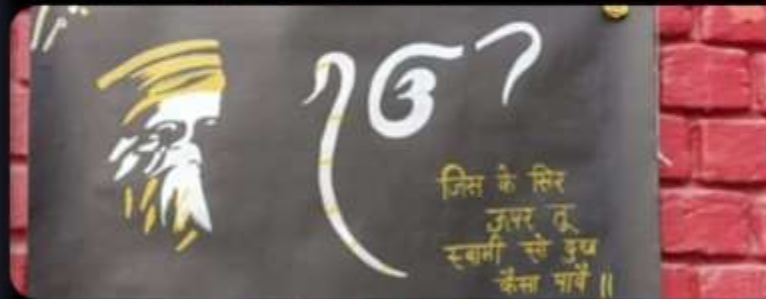 ੴ
जिस के सिर
ऊपर तू
स्वामी सो दुख
कैसा पावै ॥